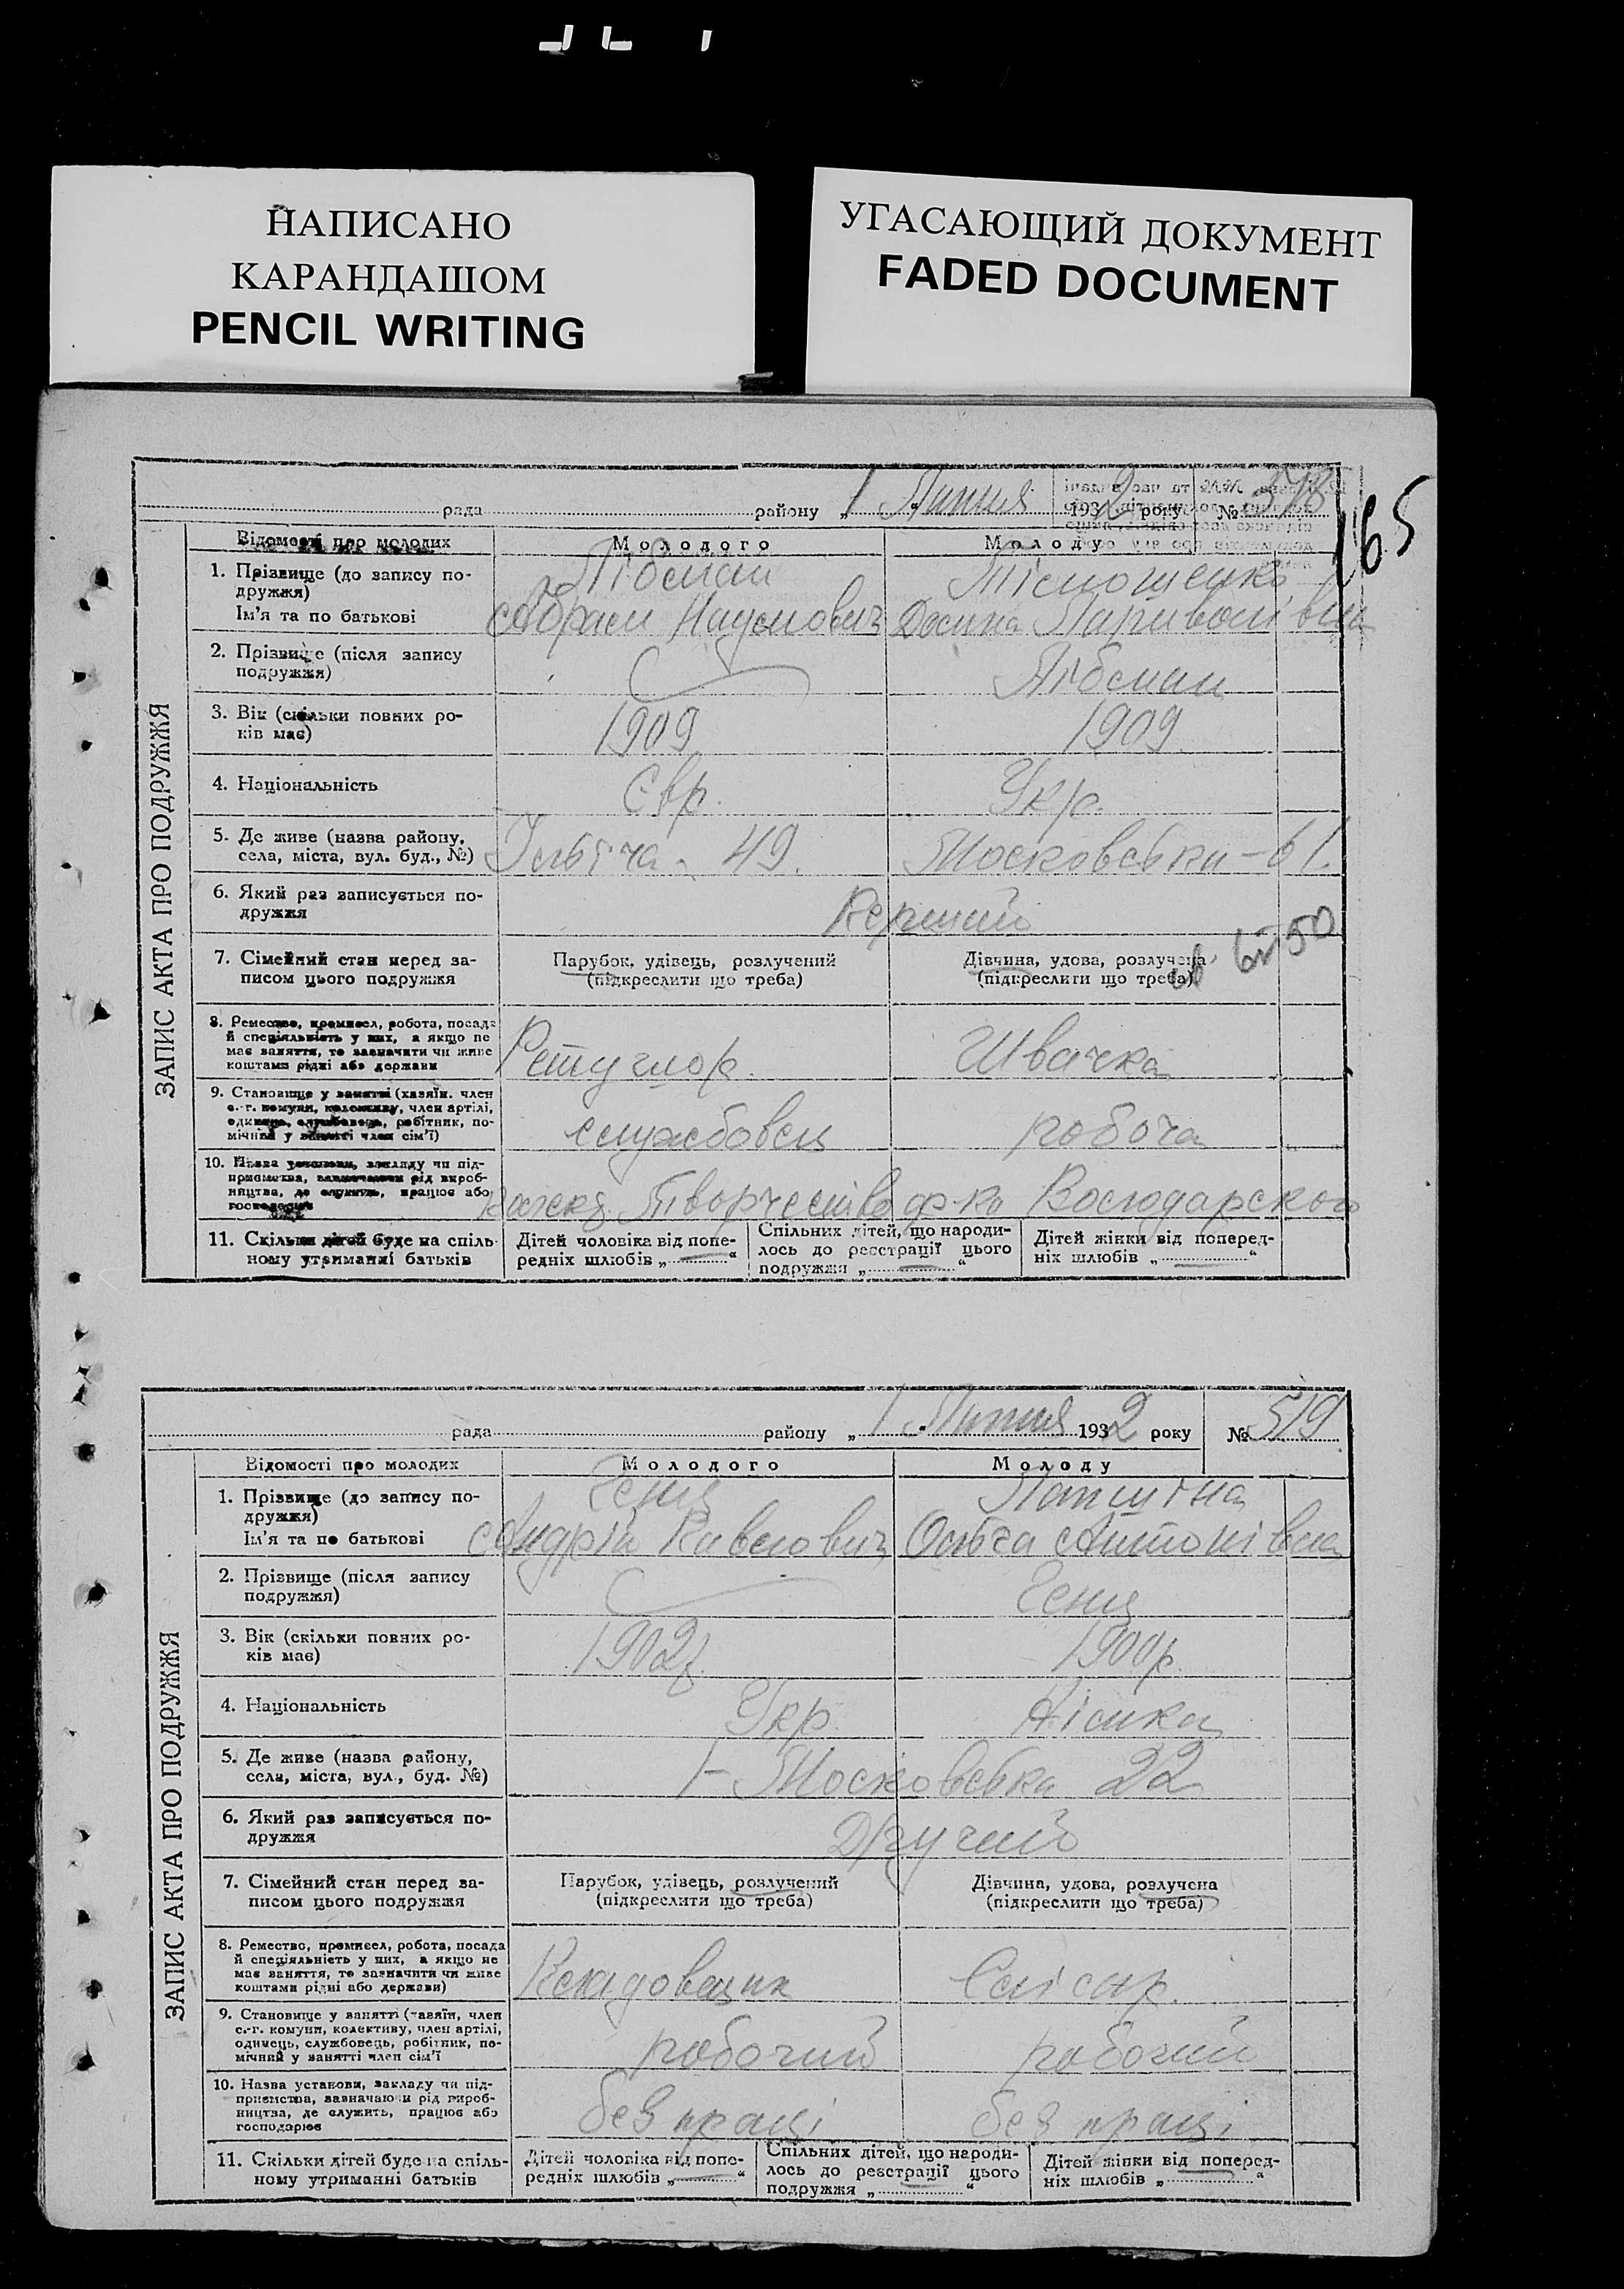 НАПИСАНО
КАРАНДАШОМ
PENCIL WRITING
УГАСАЮЩИЙ ДОКУМЕНТ
FADED DOCUMENT
165
рада району „ 1 " Липня 1932 року № 518
ЗАПИС АКТА ПРО ПОДРУЖЖЯ
Відомості про молодих
Молодого
Молоду
1. Прізвище (до запису по-
дружжя)
Ім'я та по батькові
Лібман
Абрам Наумович
Тімошенко
Паривонівна
2. Прізвище (після запису
подружжя)
Лібман
3. Вік (скільки повних ро-
ків має)
1909
1909
4. Національність
Євр.
Укр.
5. Де живе (назва району,
села, міста, вул. буд., №)
Ілліча 49.
Московська - 61.
6. Який раз записується по-
дружжя
Перший
7. Сімейний стан перед за-
писом цього подружжя
Парубок, удівець, розлучений
(підкреслити що треба)
Дівчина, удова, розлучена
(підкреслити що треба)
50
8. Ремество, промисел, робота, посада
й спеціяльність у них, а якщо не
має заняття, то зазначити чи живе
коштами рідні або держави
Ретушор.
Швачка
9. Становище у занятті (хазяїн. член
с.-г. комуни, колективу, член артілі,
одинець, службовець, робітник, по-
мічний у занятті член сім'ї)
службовец
робоча
10. Назва установи, закладу чи під-
приємства, зазначаючи рід вироб-
ництва, де служить, працює або
господарює
Творчество
ф-ка Володарского
11. Скільки дітей буде на спіль-
ному утриманні батьків
Дітей чоловіка від попе-
редніх шлюбів „ — "
Спільних дітей, що народи-
лось до реєстрації цього
подружжя „ — "
Дітей жінки від поперед-
ніх шлюбів „ — "
рада району „ 1 " Липня 1932 року № 519
ЗАПИС АКТА ПРО ПОДРУЖЖЯ
Відомості про молодих
Молодого
Молоду
1. Прізвище (до запису по-
дружжя)
Ім'я та по батькові
Андрій Павлович
Ольга Антонівна
2. Прізвище (після запису
подружжя)
3. Вік (скільки повних ро-
ків має)
1902р.
1900р.
4. Національність
Укр.
Німка
5. Де живе (назва району,
села, міста, вул., буд. №)
1 - Московська 22
6. Який раз записується по-
дружжя
Другий
7. Сімейний стан перед за-
писом цього подружжя
Парубок, удівець, розлучений
(підкреслити що треба)
Дівчина, удова, розлучена
(підкреслити що треба)
8. Ремество, промисел, робота, посада
й спеціяльність у них, а якщо не
має заняття, то зазначити чи живе
коштами рідні або держави)
Кладовщик
Слісар.
9. Становище у занятті (хазяїн, член
с.-г. комуни, колективу, член артілі,
одинець, службовець, робітник, по-
мічний у занятті член сім'ї
робочий
робочий
10. Назва установи, закладу чи під-
приємства, зазначаючи рід вироб-
ництва, де служить, працює або
господарює
без праці
без праці
11. Скільки дітей буде на спіль-
ному утриманні батьків
Дітей чоловіка від попе-
редніх шлюбів „ — "
Спільних дітей, що народи-
лось до реєстрації цього
подружжя „ — "
Дітей жінки від поперед-
ніх шлюбів „ — "